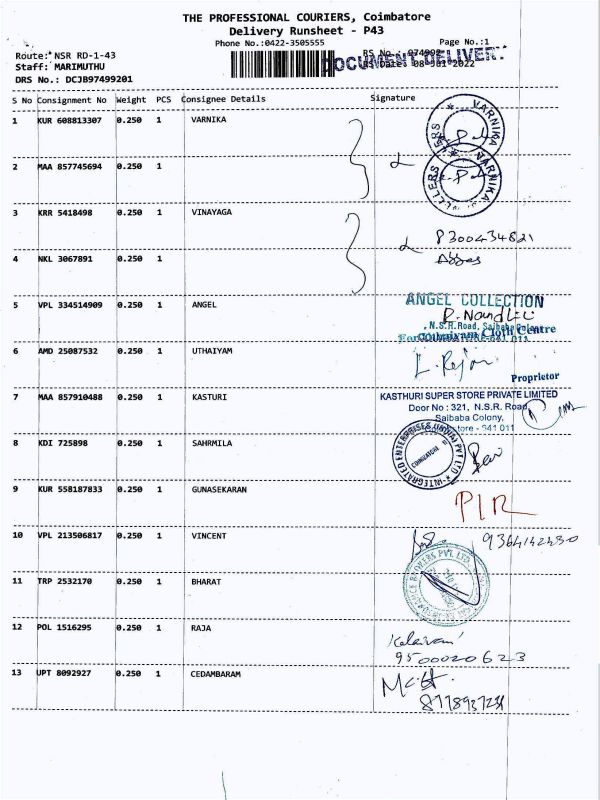 THE PROFESSIONAL COURIERS, Coimbatore
Delivery Runsheet - P43
Phone No.:0422-3505555
Page No.:1
Route: NSR RD-1-43
Staff: MARIMUTHU
DRS No.: DCJB97499201
DOCUMENT DELIVERY
S No Consignment No Weight PCS Consignee Details Signature
1 KUR 608813307 0.250 1 VARNIKA
VARNIKA
2 MAA 857745694 0.250 1
VARNIKA
3 KRR 5418498 0.250 1 VINAYAGA
8300434821
4 NKL 3067891 0.250 1
5 VPL 334514909 0.250 1 ANGEL
ANGEL COLLECTION
N.S.R.Road, Saibaba
Cloth Centre
6 AMD 25087532 0.250 1 UTHAIYAM
Proprietor
7 MAA 857910488 0.250 1 KASTURI
KASTHURI SUPER STORE PRIVATE LIMITED
Door No : 321, N.S.R. Road,
Saibaba Colony,
8 KDI 725898 0.250 1 SAHRMILA
INTEGRATED ENTERPRISES (INDIA) PVT LTD
COIMBATORE
9 KUR 558187833 0.250 1 GUNASEKARAN
10 VPL 213506817 0.250 1 VINCENT
9364142430
11 TRP 2532170 0.250 1 BHARAT
PVT. LTD.
12 POL 1516295 0.250 1 RAJA
9500020623
13 UPT 8092927 0.250 1 CEDAMBARAM